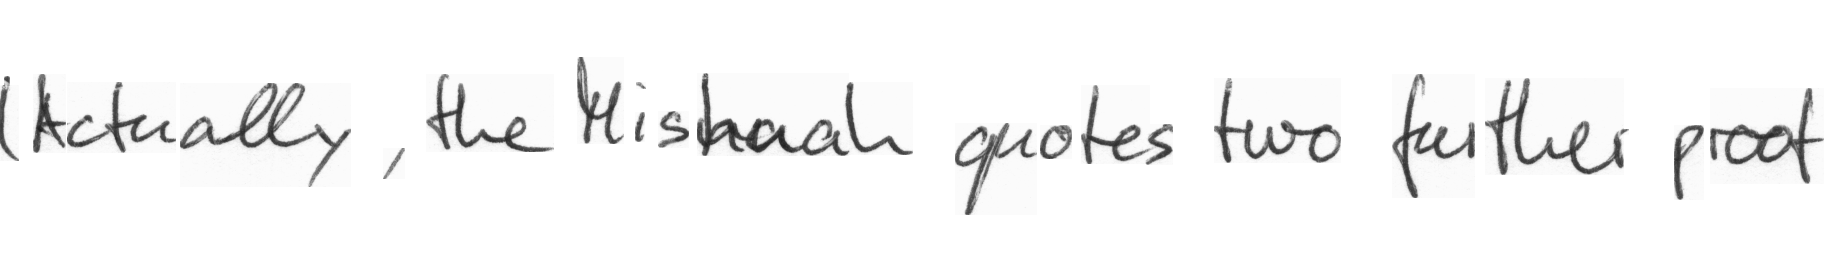 (Actually, the Mishnah quotes two further proof